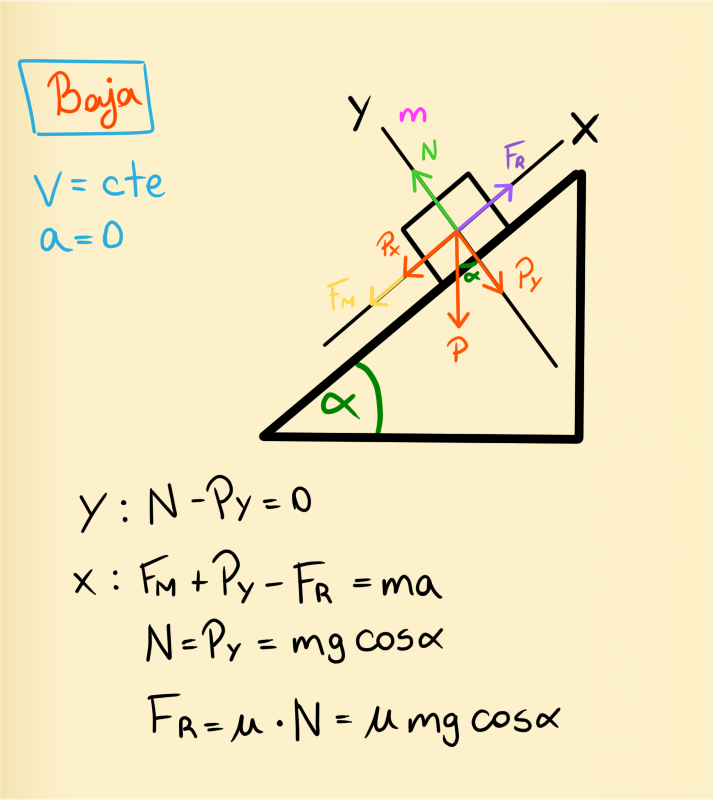 Baja
V = cte
a = 0
Y m
N
FR
X
Px
α
Py
FM
P
α
Y : N - Py = 0
X : FM + Py - FR = ma
N = Py = mg cosα
FR = μ · N = μ mg cosα